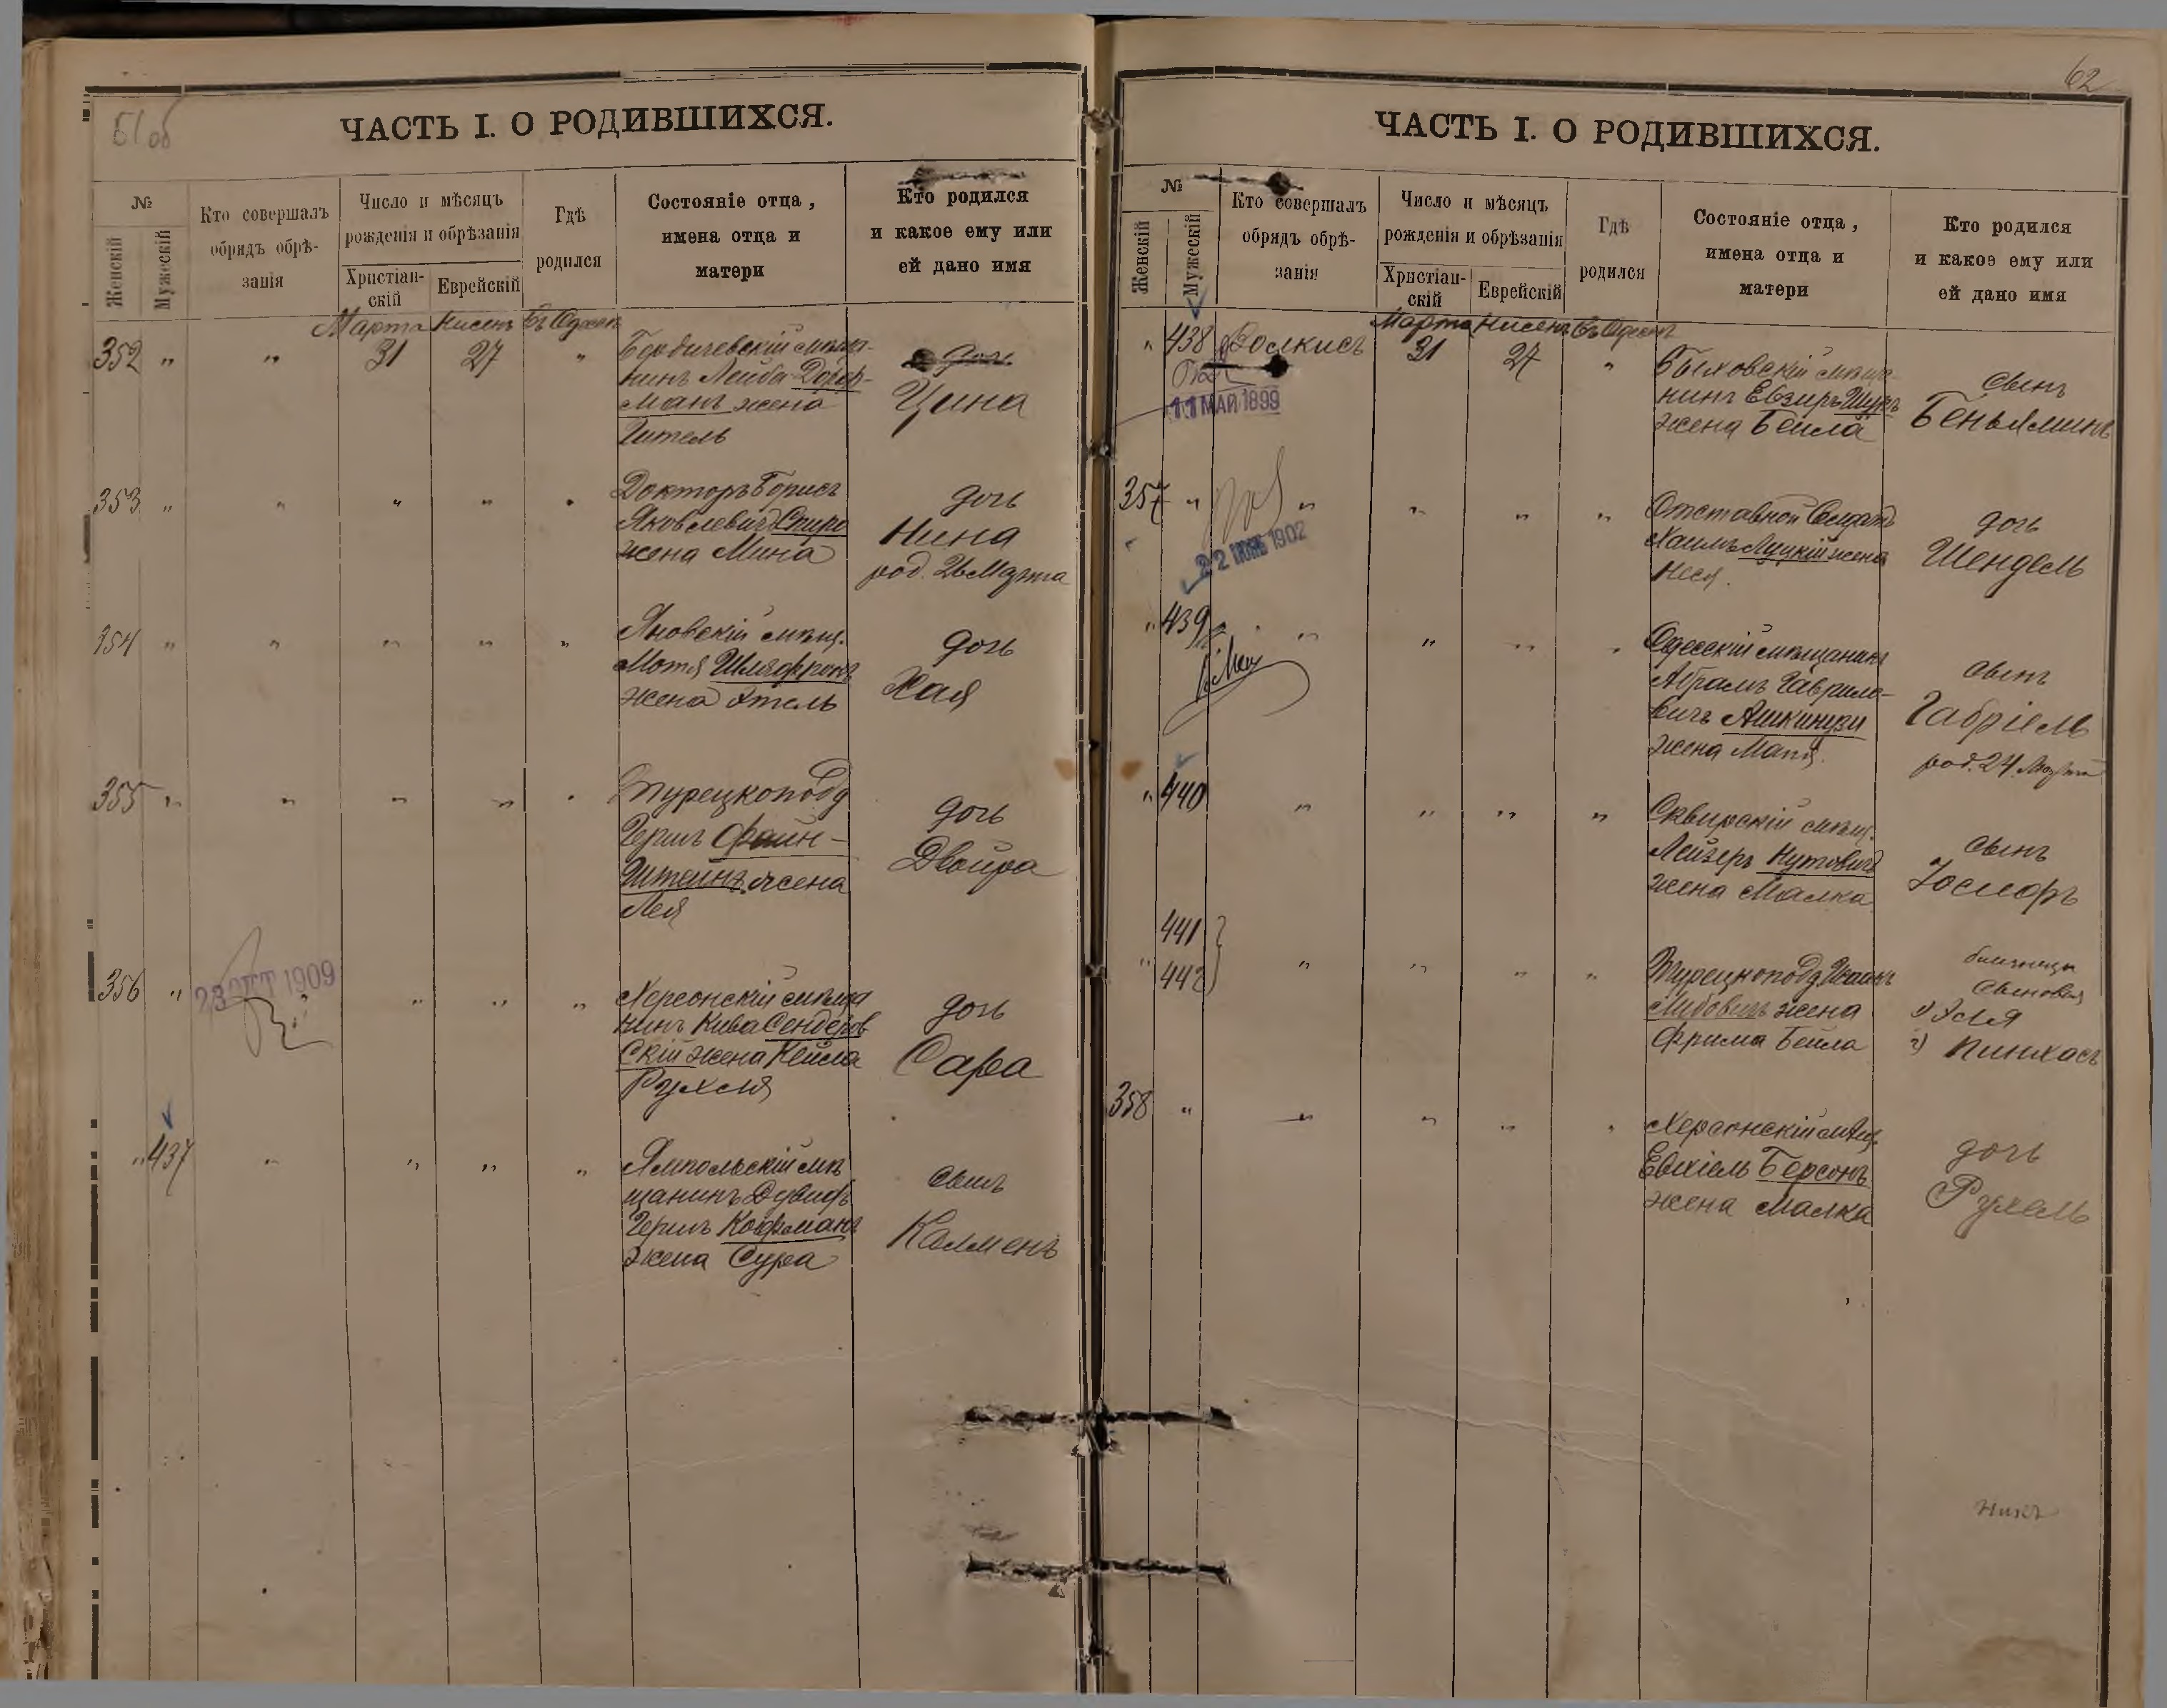 61 об
ЧАСТЬ I. О РОДИВШИХСЯ.
№
Женскій
Мужескій
Кто совершалъ
обрядъ обрѣ-
занія
Число и мѣсяцъ
рожденія и обрѣзанія
Христіан-
скій
Еврейскій
Гдѣ
родился
Состояніе отца,
имена отца и
матери
Кто родился
и какое ему или
ей дано имя
Марта Нисенъ Въ Одессѣ
352 " " 31 27 "
Бердичевскій мѣща-
нинъ Лейба
манъ жена
Гитель
дочь
Цина
353 " " " " "
Докторъ Борисъ
Яковлевичъ Спиро
жена Мина
дочь
Нина
род. 26 Марта
354 " " " " "
Яновскій мѣщ.
Мотя
жена Этель
дочь
Хая
355 " " " " "
Турецкоподд
Герш Файн-
штейнъ жена
Лея
дочь
Двойра
356 " 23 ОКТ 1909 " " "
Херсонскій мѣща
нинъ Кива Сендеров
скій жена Кейла
Рухля
дочь
Сара
" 437 " " " "
Ямпольскій мѣ
щанинъ
Герш Кофманъ
жена Сура
сынъ
Калменъ
62
ЧАСТЬ I. О РОДИВШИХСЯ.
№
Женскій
Мужескій
Кто совершалъ
обрядъ обрѣ-
занія
Число и мѣсяцъ
рожденія и обрѣзанія
Христіан-
скій
Еврейскій
Гдѣ
родился
Состояніе отца,
имена отца и
матери
Кто родился
и какое ему или
ей дано имя
Марта Нисенъ Въ Одессѣ
" 438 31 27 "
11 МАЙ 1899
Быховскій мѣща-
нинъ
жена Бейла
сынъ
Беньяминъ
357 " " " " "
22 1902
Отставной Солдатъ
Хаимъ Луцкій жена
Неся.
дочь
Шендель
" 439 " " " "
Одесскій мѣщанинъ
Абрамъ Гаврило-
вичъ Ашкинузи
жена
сынъ
Габріель
род. 24 Марта
" 440 " " " "
Сквирскій мѣщ.
Лейзеръ Нутовичъ
жена Малка
сынъ
Іосифъ
441
" 442 " " " "
Турецкоподд
жена
Фрима Бейла
близнецы
сыновья
1)
2) Пинхасъ
358 " " " " "
Херсонскій мѣщ.
Ехіель Берсонъ
жена Малка
дочь
Рухель